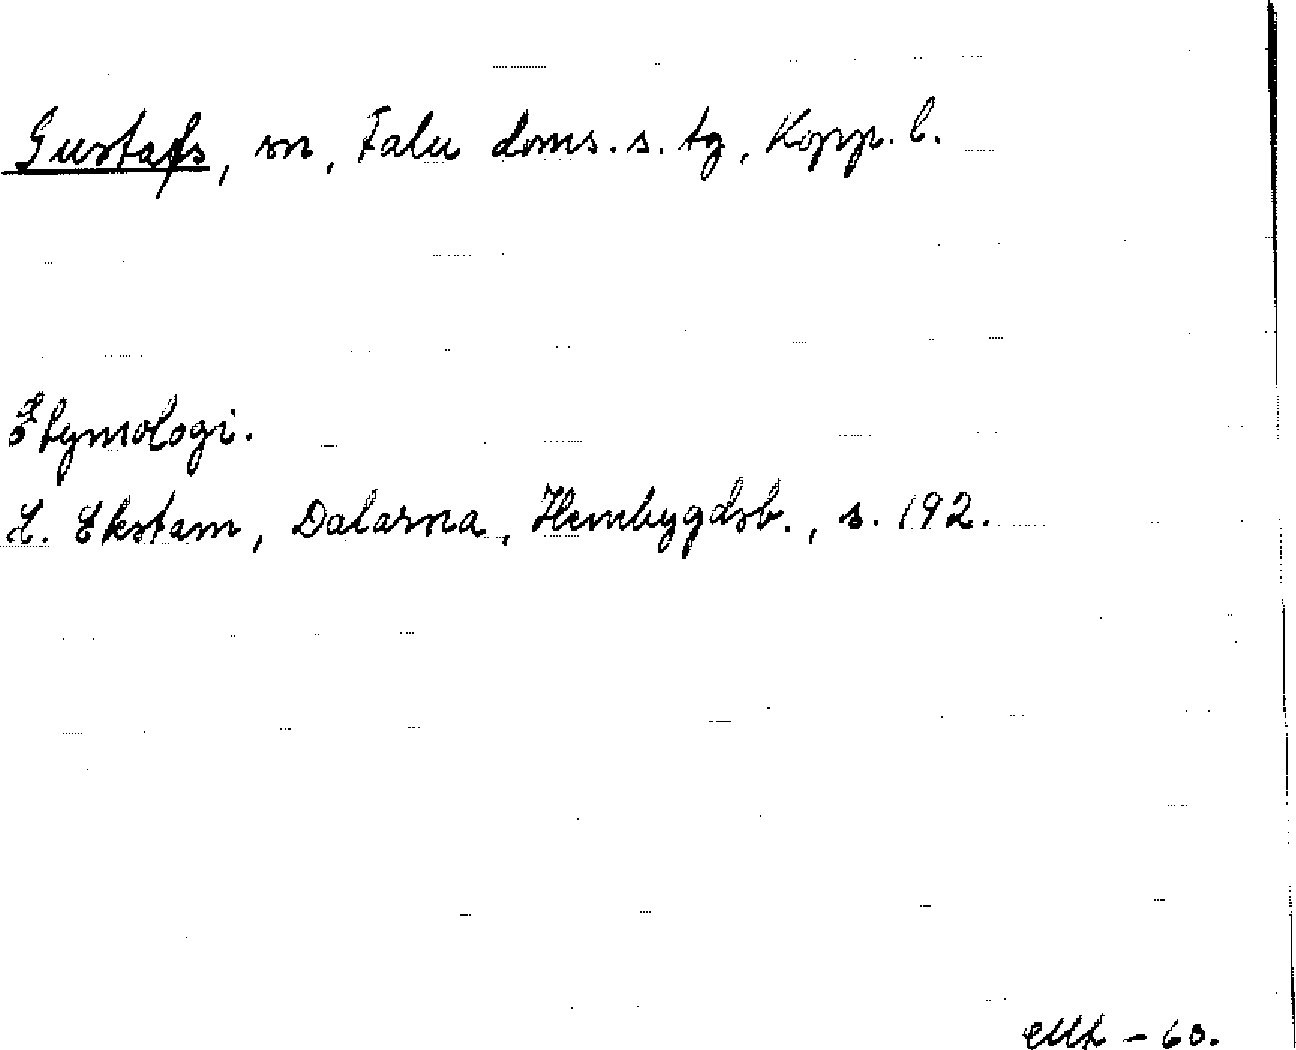 Gustafs, sn, Falu doms. s. tg, Kopp. l.
Etymologi.
E. Ekstam, Dalarna, Hembygdsb., s. 192.
- 60.